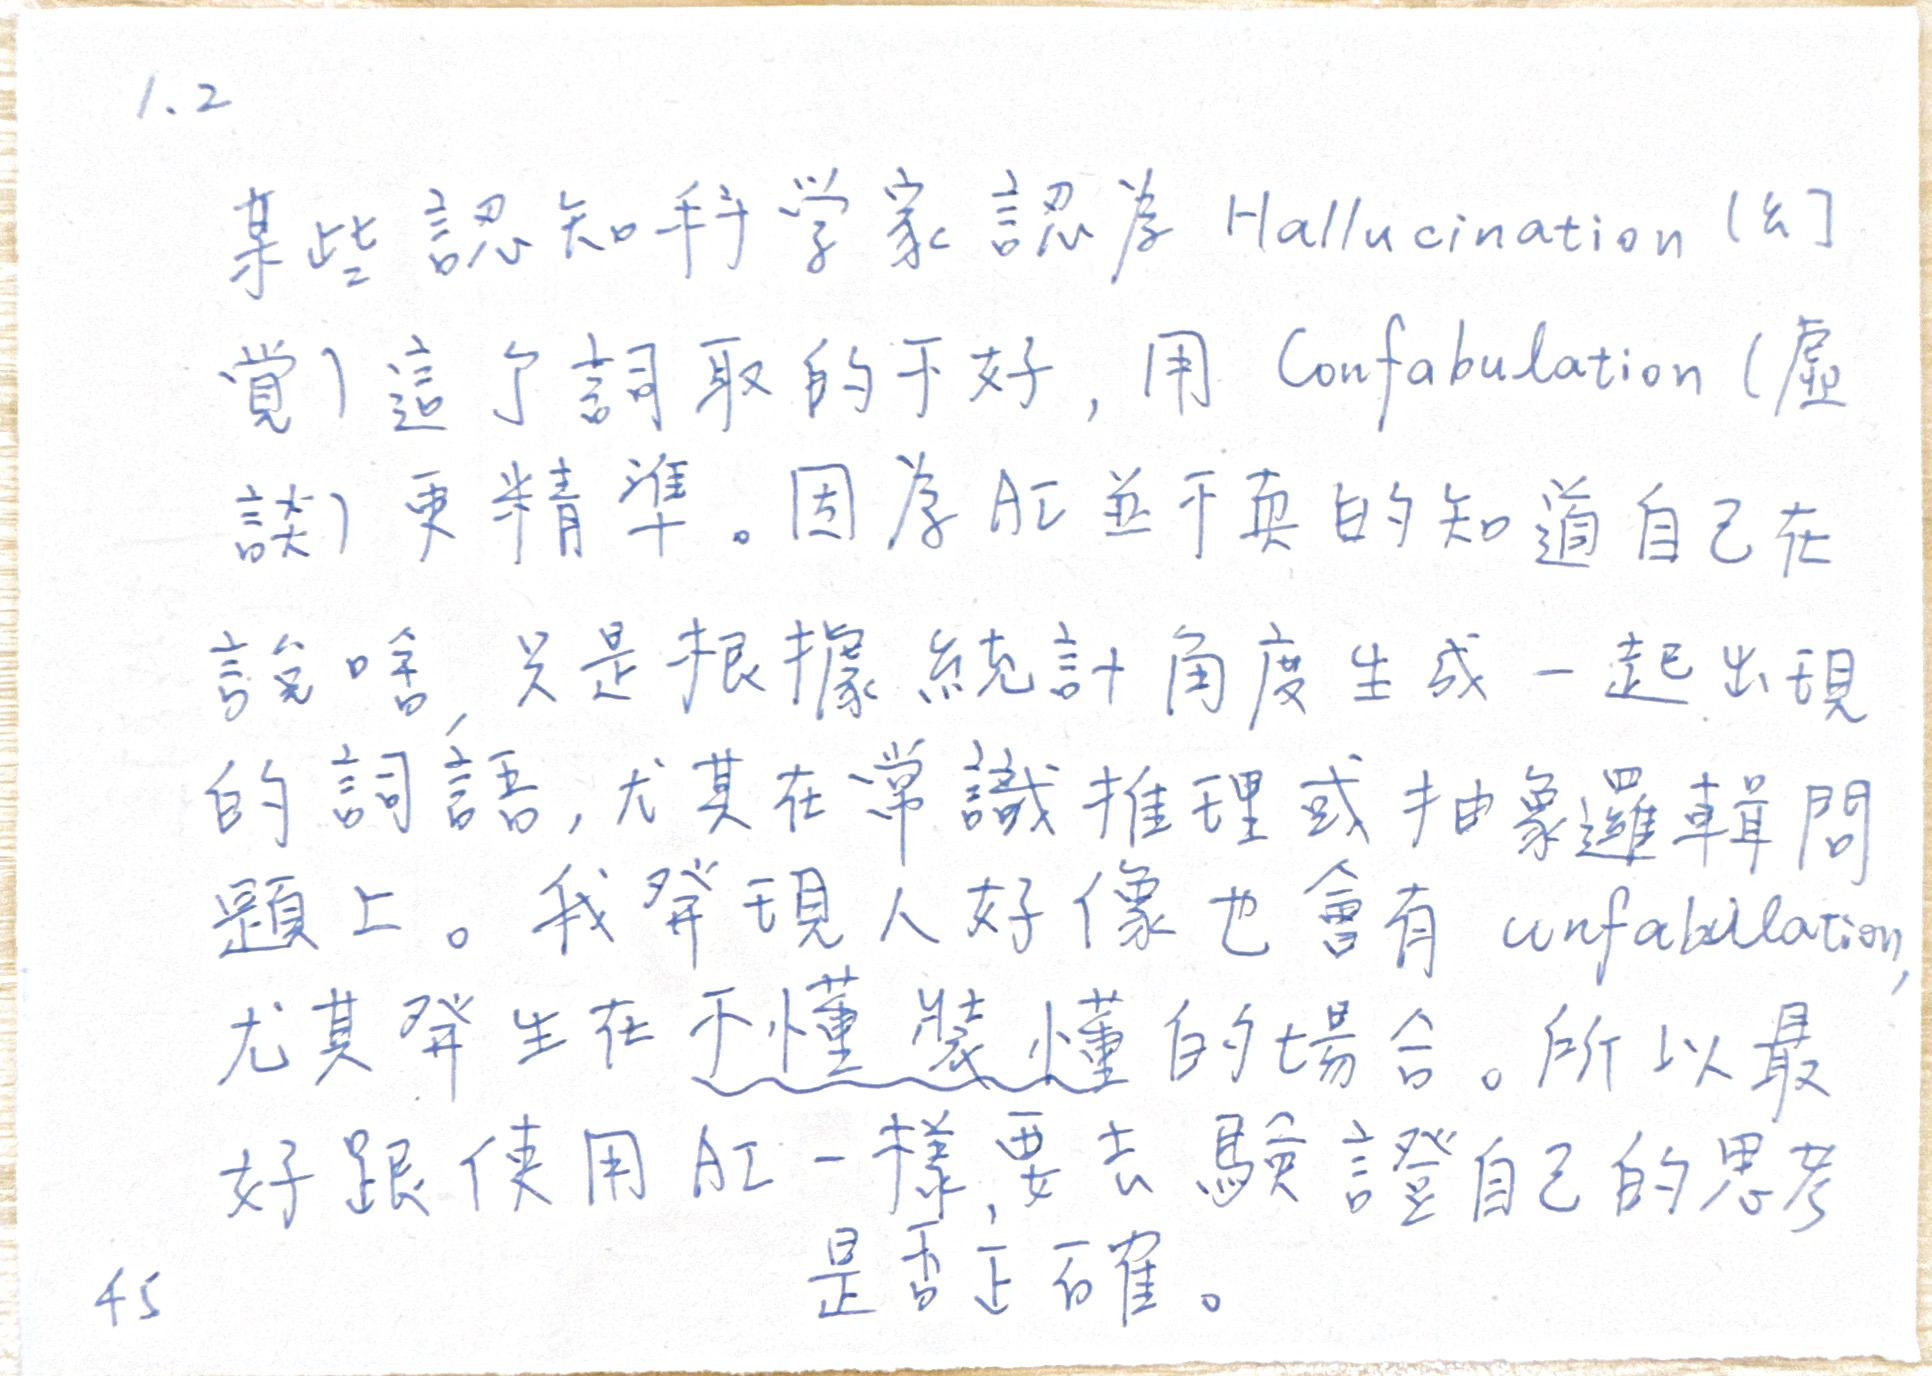 1.2
某些認知科学家認為 Hallucination (幻
覚) 這个詞取的不好, 用 Confabulation (虛
談) 更精準。因為AI並不真的知道自己在
說啥, 只是根據統計角度生成一起出現
的詞語, 尤其在常識推理或抽象邏輯問
題上。我發現人好像也會有 confabulation,
尤其發生在不懂裝懂的場合。所以最
好跟使用AI一樣, 要去驗證自己的思考
是否正確。
45